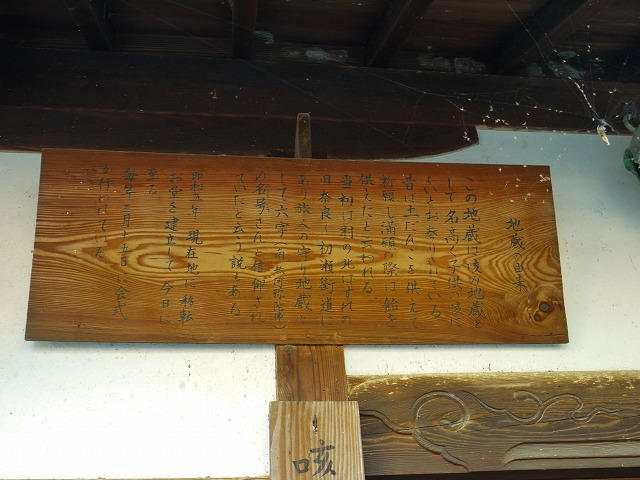 地蔵の由来
この地蔵は咳の地蔵と
して名高く子供の咳に
よいとお参りされている。
昔は土だんごを供えて
祈願し満願の際は飴を
供えたと云われる
当初は村の北はずれの
旧奈良〜初瀬街道に
面し旅人の守り地蔵と
して六字(南無阿弥陀仏)
の名号さんと信仰され
ていたと云う説もある
昭和五年 現在地に移転
お堂を建立して今日に
至る
毎年 月十五日 会式
が行われている
咳